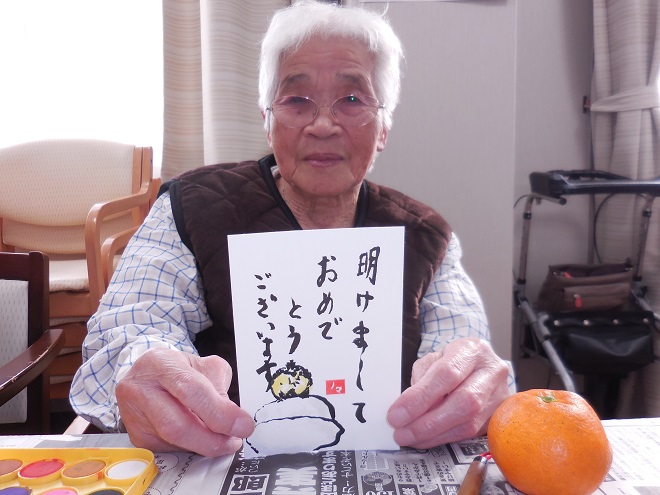 明けまして
おめで
とう
ございます
ノマ